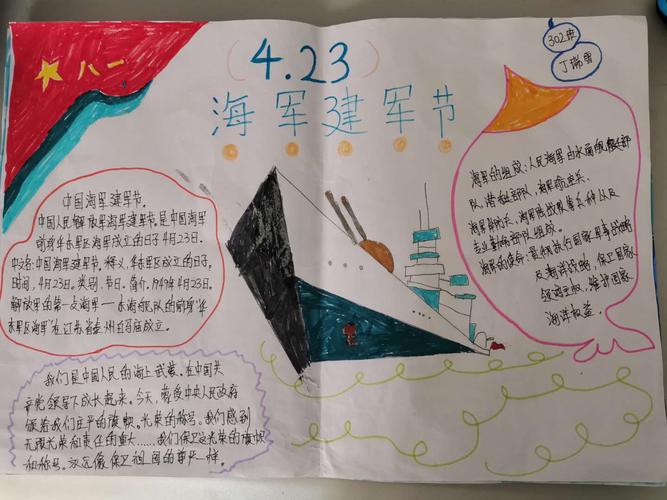 八一
(4.23)
海军建军节
302班
丁瑞雪
中国海军建军节.
中国人民解放军海军建军节.是中国海军
华东军区海军成立的日子4月23日.
中文名:中国海军建军节,释义,华东军区成立的日子.
时间,4月23日.类别,节日.简介,1949年4月23日.
解放军的第一支海军——东海舰队的前身"华
东军区海军"在江苏省泰州白马庙成立.
我们是中国人民的海上武装.在中国共
产党领导下成长起来.今天,接受中央人民政府
颁给我们庄严的旗帜.光荣的称号.我们感到
无限光荣和责任的重大……我们保卫这光荣的旗帜
和称号.永远像保卫祖国的尊严一样.
海军的组成:人民海军由水面舰艇部
队.潜艇部队,海军航空兵.
海军陆战队等兵种以及
专业勤务部队组成.
海军的使命:是独立执行国家军事战略
及海洋战略,保卫国家
领海主权,维护国家
海洋权益.